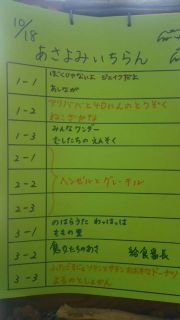 10/18
あさよみいちらん
1-1 ぼくじゃないよ ジェイクだよ
あしなが
1-2 アリババと40人のとうぞく
ねこざかな
1-3 みんなワンダー
むしたちのえんそく
2-1
2-2 ヘンゼルとグレーテル
2-3
3-1 のはらうた わっはっは
ももの里
3-2 鳥たちのあさ 給食番長
3-3 ふたごのこぐま
よるのとしょかん